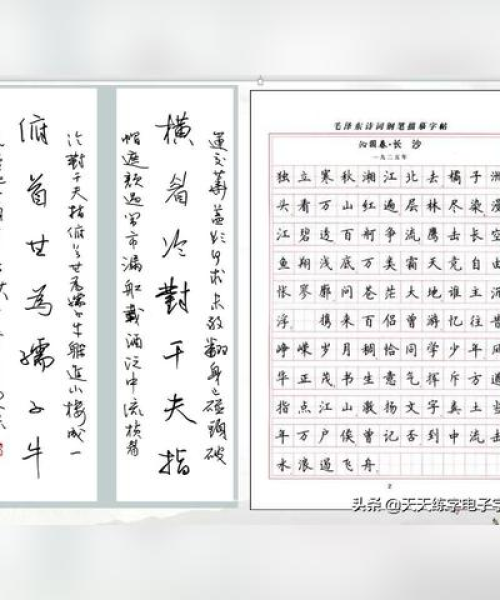 運交華蓋欲何求未敢翻身已碰頭破
橫眉冷對千夫指
帽遮顏過鬧市漏船載酒泛中流橫眉
冷對千夫指俯首甘為孺子牛躲進小樓成一
俯首甘為孺子牛
毛泽东诗词钢笔描摹字帖
沁园春·长沙
一九二五年
独立寒秋湘江北去橘子洲
头看万山红遍层林尽染漫
江碧透百舸争流鹰击长空
鱼翔浅底万类霜天竞自由
怅寥廓问苍茫大地谁主沉
浮。携来百侣曾游忆往昔
峥嵘岁月稠恰同学少年风
华正茂书生意气挥斥方遒
指点江山激扬文字粪土当
年万户侯曾记否到中流击
水浪遏飞舟
2
头条@天天练字电子字